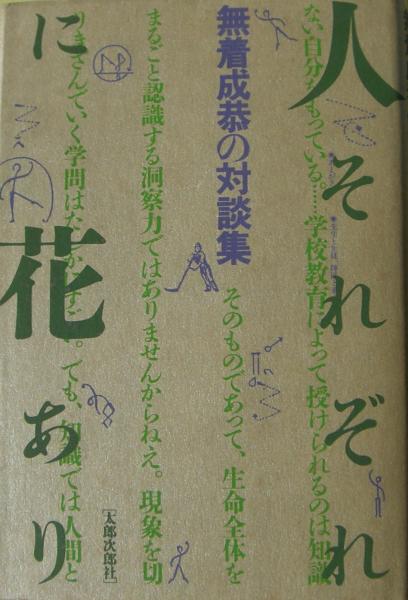 人それぞれ
に花あり
無着成恭の対談集
ない自分をもっている。……学校教育によって授けられるのは知識
そのものであって、生命全体を
まるごと認識する洞察力ではありませんからねえ。現象を切
りきざんでいく学問はたしかにすごい。でも、知識では人間と
[太郎次郎社]